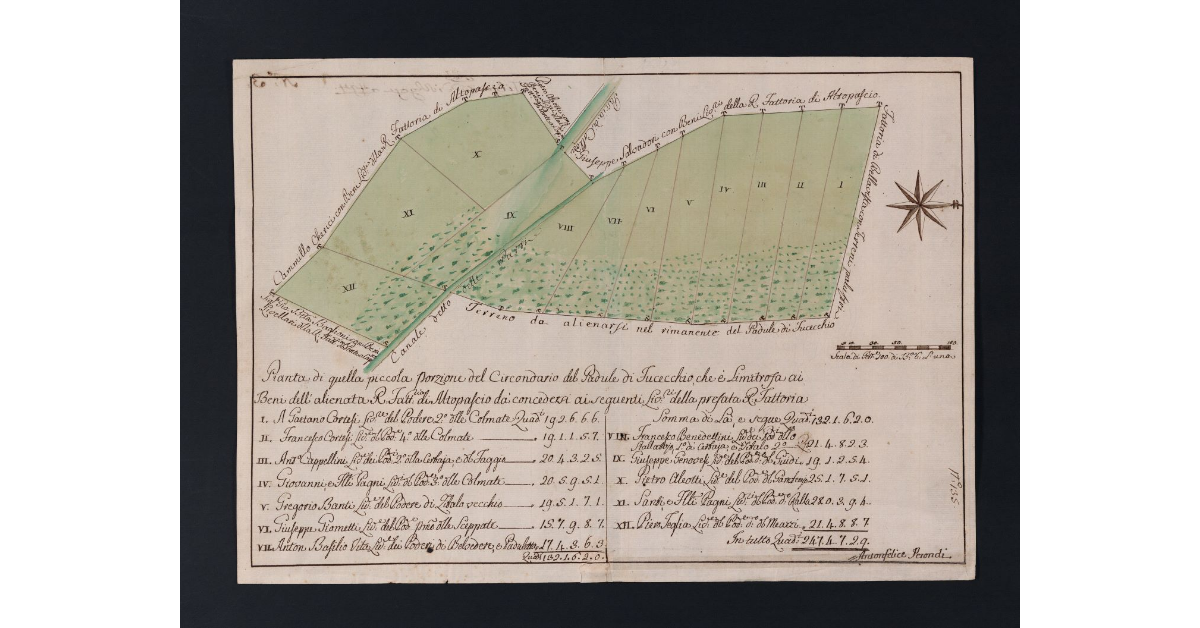 Cammillo Chericci con Beni Liv:ri della R. Fattoria di Altopascio
Giuseppe Salvadori con Beni Liv:ri della R. Fattoria di Altopascio
Fattoria di Bellavista con Terreni palustri
X
XI
IX
XII
VIII
VII
VI
V
IV
III
II
I
Canale detto
Terreno da alienarsi nel rimanente del Padule di Fucecchio
Scala di
Pianta di quella piccola Porzione del Circondario del Padule di Fucecchio, che è Limitrofa ai
Beni dell' alienata R. Fatt:ria di Altopascio da concedersi ai seguenti Liv:ri della prefata R. Fattoria
I. A Gaetano Cortesi Liv:rio del Podere 2.º alle Colmate Quad:ti 19 2. 6. 6. 6.
II. Francesco Cortesi Liv:rio del Pod:e 4.º alle Colmate 19. 1. 1. 5. 7.
III. Ant:o Cappellini Liv: del Pod: 2.º alla Cerbaja, e del Faggio 20. 4. 3. 2. 5.
IV. Giovanni e F:lli Pagni Liv: del Pod: 3.º alle Colmate 20. 5. 9. 5. 1.
V. Gregorio Banti Liv: del Podere di Tofalo vecchio 19. 5. 1. 7. 1.
VI. Giuseppe Giometti Liv: del Pod: primo alle Sceppate 15. 7. 9. 8. 7.
VII. Anton Basilio Vita Liv: dei Poderi di Belvedere, e Padulette 17. 4. 3. 6. 3.
Quad:ti 132. 1. 6. 2. 0.
Somma di Là, e segue Quad:ti 132. 1. 6. 2. 0.
VIII. Francesco Benedettini Liv: dei Pod: dello
Stallatojo, 1.º di Cerbaja, e Tofalo 2.º 21. 4. 8. 2. 3.
IX. Giuseppe Genovesi Liv: del Pod: di Guidi 19. 1. 2. 5. 4.
X. Pietro Aleotti Liv: del Pod: del 25. 1. 7. 5. 1.
XI. Santi, e F:lli Pagni Liv: del Pod: di Ralla 28. 0. 3. 9. 4.
XII. Piero Teglia Liv: del Pod: di del Marzi 21. 4. 8. 8. 7.
In tutto Quad:ti 247. 4. 7. 2. 9.
Antonfelice Perondi
Nº 135